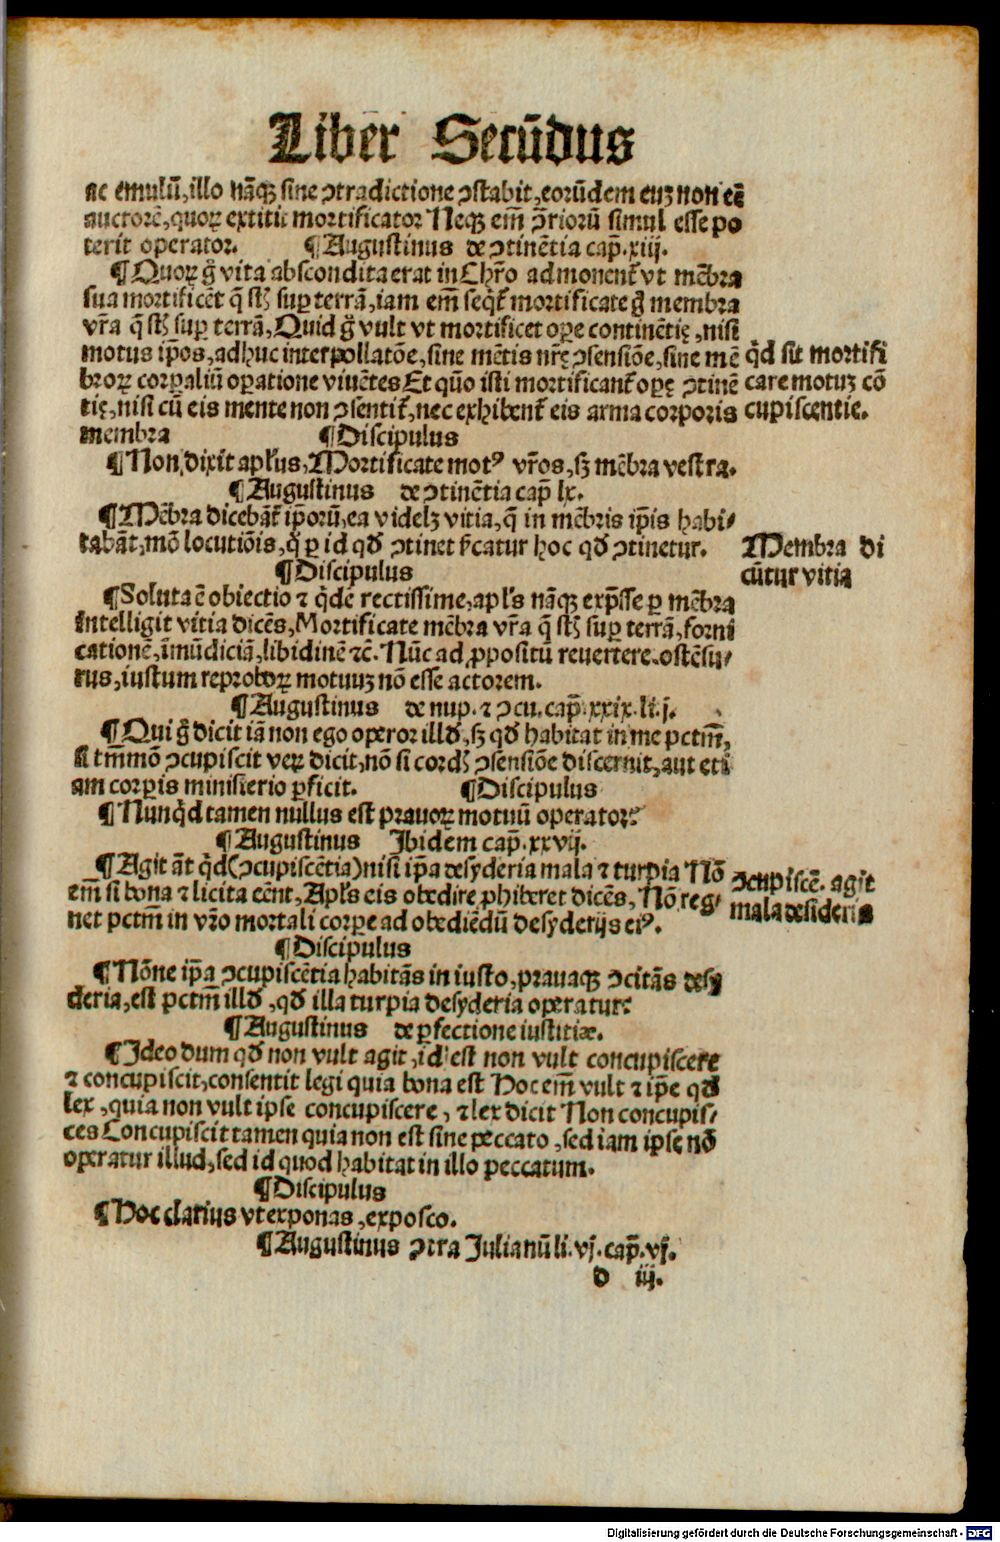 Liber Secūdus
ac emulū, illo nāqꝫ sine ꝯtradictione ꝯstabit, eorūdem euꝫ non eē
auctorē, quoꝝ extitit mortificator Neqꝫ em̄ p̄riorū simul esse po
terit operator. ¶Augustinus de ꝯtinētia cap̄.xiij.
¶Quoꝝ g̊ vita abscondita erat in Chr̄o admonent᷑ vt mēbra
sua mortificēt q̄ st̄ suꝑ terrā, iam em̄ seqt᷑ mortificate g̊ membra
vr̄a q̄ st̄ suꝑ terrā, Quid g̊ vult vt mortificet oꝑe continētię, nisi
motus ip̄os, adhuc interpollatōe, sine mētis nr̄ę ꝯsensiōe, sine mē
broꝝ corꝑaliū oꝑatione viuētes Et quō isti mortificant᷑ oꝑę ꝯtinē
tię, nisi cū eis mente non ꝯsentit᷑, nec exhibent᷑ eis arma corporis
membra ¶Discipulus
qͥd sit mortifi
care motuꝫ cō
cupiscentie.
¶Non dixit apl̓us, Mortificate motꝰ vr̄os, sꝫ mēbra vestra.
¶Augustinus de ꝯtinētia cap̄ lx.
¶Mēbra dicebāt᷑ ip̄orū, ea videlꝫ vitia, q̄ in mēbris ip̄is habi⸗
tabāt, mō locutiōis, q̄ ꝑ id qd̓ ꝯtinet sͥcatur hoc qd̓ ꝯtinetur.
Membra di
cūtur vitia
¶Discipulus
¶Soluta ē obiectio ⁊ qͥdē rectissime, apl̓s nāqꝫ exp̄sse ꝑ mēbra
intelligit vitia dicēs, Mortificate mēbra vr̄a q̄ st̄ suꝑ terrā, forni
cationē, īmūdiciā, libidinē ⁊c̄. Nūc ad ꝓpositū reuertere. ostēsu⸗
rus, iustum reproboꝝ motuuꝫ nō esse actorem.
¶Augustinus de nup. ⁊ ꝯcu. cap̄.xxix.li.j.
¶Qui g̊ dicit iā non ego operor illd̓, sꝫ qd̓ habitat in me pctm̄,
si tm̄mō ꝯcupiscit veꝝ dicit, nō si cord̓ ꝯsensiōe discernit, aut eti
am corꝑis ministerio ꝑficit. ¶Discipulus
¶Nunqͥd tamen nullus est prauoꝝ motuū operator?
¶Augustinus Ibidem cap̄.xxvij.
¶Agit āt qͥd (ꝯcupiscētia) nisi ip̄a desyderia mala ⁊ turpia Nō
em̄ si bona ⁊ licita eēnt, Apl̓s eis obedire ꝓhiberet dicēs, Nō reg⸗
net pctm̄ in vr̄o mortali corꝑe ad obediēdū desyderijs eiꝰ.
ꝯcupiscē. agit
mala desideria
¶Discipulus
¶Nōne ip̄a ꝯcupiscētia habitās in iusto, prauaqꝫ ꝯcitās desy
deria, est pctm̄ illd̓, qd̓ illa turpia desyderia operatur?
¶Augustinus de ꝑfectione iustitiæ.
¶Ideo dum qd̓ non vult agit, id est non vult concupiscere
⁊ concupiscit, consentit legi quia bona est Hoc em̄ vult ⁊ ip̄e qd̓
lex, quia non vult ipse concupiscere, ⁊ lex dicit Non concupis⸗
ces Concupiscit tamen quia non est sine peccato, sed iam ipse nō
operatur illud, sed id quod habitat in illo peccatum.
¶Discipulus
¶Hoc clarius vt exponas, exposco.
¶Augustinus ꝯtra Julianū li.vj.cap̄.vj.
d iij.
Digitalisierung gefördert durch die Deutsche Forschungsgemeinschaft - DFG